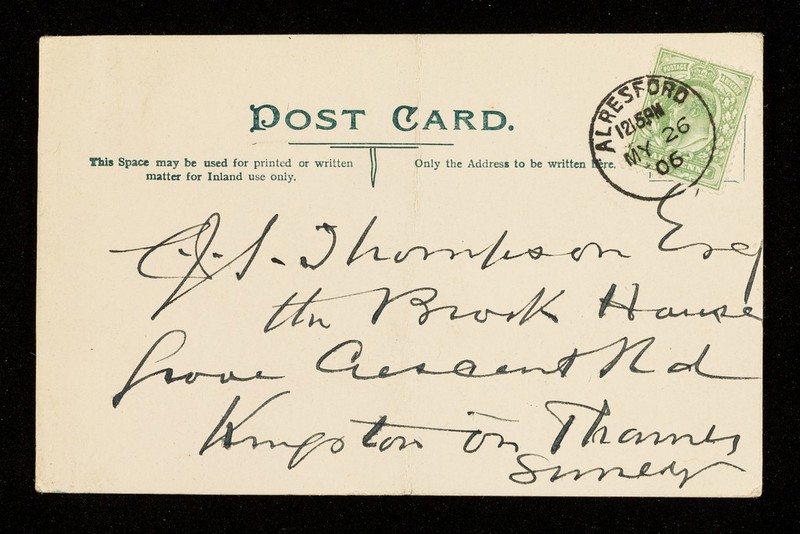 POST CARD.
This Space may be used for printed or written
matter for Inland use only.
Only the Address to be written here.
ALRESFORD
12.15PM
MY 26
06
POSTAGE
J. S. Thompson Esq
the Brook House
Grove Crescent Rd
Kingston on Thames
Surrey